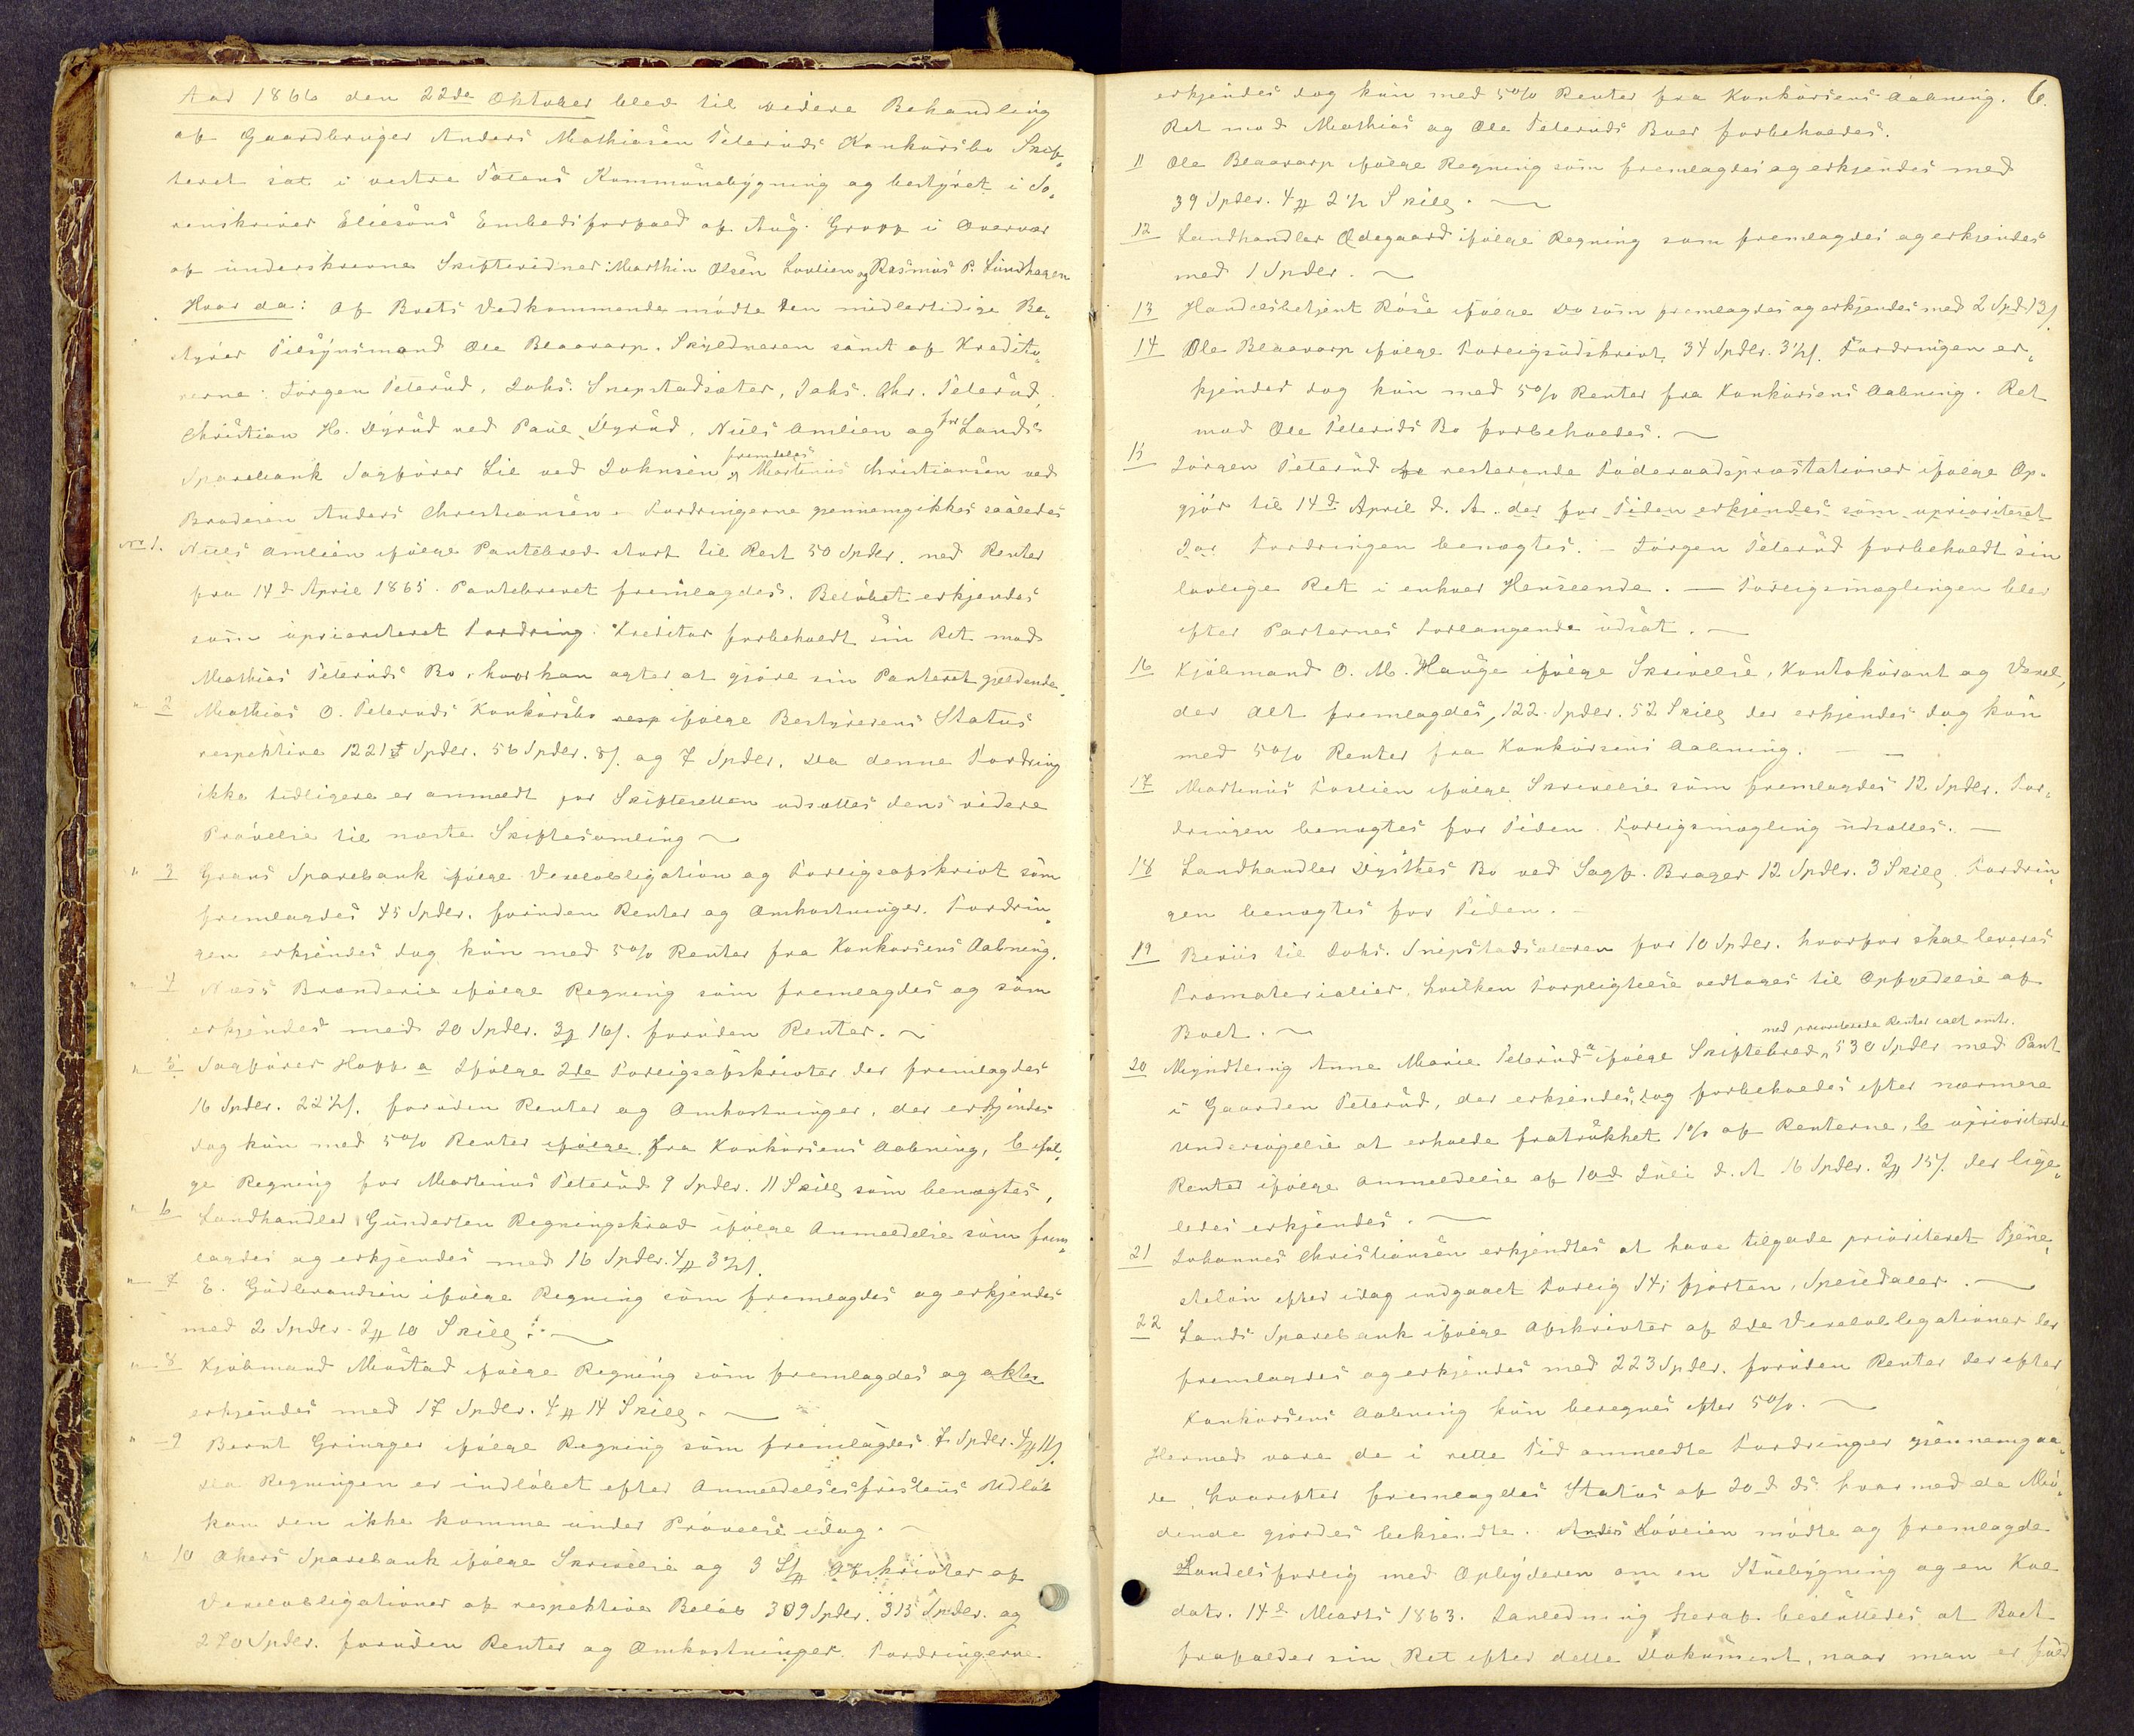 Aar 1866 den 22de Oktober blev til videre Behandling
af Gaardbruger Anders Mathiasen Peteruds Konkursbo Skif„
teret sat i vestre Totens Kommunebygning og bestyret i So„
renskriver Eliesøns Embedsforfald af Aug. Gropp i Overvær
af underskrevne Skiftevidner: Marthin Olsen Lovlien og Rasmus P. Lundhagen
Hvor da: Af Boets Vedkommende mødte den midlertidige Be„
styrer Tilsynsmand Ole Blaavarp. Skyldneren samt af Kredito„
rerne: Jørgen Peterud, Johs. Snepstadsæter, Johs. Chr. Peterud,
Christian H. Dyrud ved Paul Dyrud, Niels Amlien og for Lands
Sparebank Sagfører Lie ved Johnsen, fremdeles Martinus Christiansen ved
Broderen Anders Christiansen. Fordringerne gjennemgikkes saaledes
No 1. Niels Amlien ifølge Pantebrev stort til Rest 50 Spdlr. med Renter
fra 14d April 1865. Pantebrevet fremlagdes. Beløbet erkjendes
som uprioriteret Fordring. Kreditor forbeholdt sin Ret mod
Mathias Peteruds Bo, hvor han agter at gjøre sin Panteret gjeldende.
" 2 Mathias O. Peteruds Konkursbo resp ifølge Bestyrerens Status
respektive 1221 Spdlr. 56 Spdlr. 8 s. og 7 Spdlr. Da denne Fordring
ikke tidligere er anmeldt for Skifteretten udsattes dens videre
Prøvelse til næste Skiftesamling ~
" 3 Grans Sparebank ifølge Vexelobligation og Forligsafskrivt som
fremlagdes 45 Spdlr. foruden Renter og Omkostninger. Fordrin„
gen erkjendes dog kun med 5% Renter fra Konkursens Aabning.
" 4 Næss Brænderie ifølge Regning som fremlagdes og som
erkjendes med 20 Spdlr. 3 16 s. foruden Renter. ~
" 5 Sagfører Hoff a Ifølge 2de Forligsafskrivter der fremlagdes
16 Spdlr. 22½ s. foruden Renter og Omkostninger, der erkjendes
dog kun med 5% Renter ifølge fra Konkursens Aabning, b iføl„
ge Regning for Martinus Peterud 9 Spdlr. 11 Skill som benægtes,
" 6 Landhandler Gundersen Regningskrav ifølge Anmeldelse som frem„
lagdes og erkjendes med 16 Spdlr. 4 3½ s.
" 7 E. Gudbrandsen ifølge Regning som fremlagdes og erkjendes
med 2 Spdlr. 2 10 Skill. ~
" 8 Kjøbmand Mustad ifølge Regning som fremlagdes og
erkjendes med 17 Spdlr. 4 14 Skill. ~
" 9 Bernt Grinager ifølge Regning som fremlagdes 7 Spdlr. 4 11 s.
Da Regningen er indløbet efter Anmeldelsesfristens Udløb
kan den ikke komme under Prøvelse idag. ~
" 10 Akers Sparebank ifølge Skrivelse og 3 Afskrivter af
Vexelobligationer af respektive Beløb 309 Spdlr. 315 Spdlr. og
270 Spdlr. foruden Renter og Omkostninger. Fordringerne
6.
erkjendes dog kun med 5% Renter fra Konkursens Aabning.
Ret mod Mathias og Ole Peteruds Boer forbeholdes.
11 Ole Blaavarp ifølge Regning som fremlagdes og erkjendes med
39 Spdlr. 4 2½ Skill. ~
12 Landhandler Ødegaard ifølge Regning som fremlagdes og erkjendes
med 1 Spdlr. ~
13 Handelsbetjent Rose ifølge Do som fremlagdes og erkjendes med 2 Spd. 13 s.
14 Ole Blaavarp ifølge Forligsudskrivt 34 Spdlr. 3½ s. Fordringen er„
kjendes dog kun med 5% Renter fra Konkursens Aabning. Ret
mod Ole Peteruds Bo forbeholdes. ~
15 Jørgen Peterud resterende Føderaadspræstationer ifølge Op„
gjør til 14d April d. A. der for Tiden erkjendes som uprioriteret
Fordringen benægtes. – Jørgen Peterud forbeholdt sin
lovlige Ret i enhver Henseende. — Forligsmæglingen blev
efter Parternes Forlangende udsat. ~
16 Kjøbmand O. M. Hauge ifølge Skrivelse, Kontokurant og Vexel,
der Alt fremlagdes, 122 Spdlr. 52 Skill der erkjendes dog kun
med 5% Renter fra Konkursens Aabning. —
17 Martinus Foslien ifølge Skrivelse som fremlagdes 12 Spdlr. For„
dringen benægtes for Tiden. Forligsmægling udsattes. —
18 Landhandler Dysthes Bo ved Sagf. Brager 12 Spdlr. 3 Skill. Fordrin„
gen benægtes for Tiden. –
19 Beviis til Johs. Snepstadsæteren for 10 Spdlr. hvorfor skal leveres
Træmaterialier, hvilken Forpligtelse vedtages til Opfyldelse af
Boet. ~
20 Myndtling Anne Marie Peterud a ifølge Skiftebrev, med prioriterede Renter ialt omtr. 530 Spdlr med Pant
i Gaarden Peterud, der erkjendes, dog forbeholdes efter nærmere
Undersøgelse at erholde fratrukket 1% af Renterne, b uprioriterede
Renter ifølge Anmeldelse af 10d Juli d. A. 16 Spdlr. 2 15 s. der lige„
ledes erkjendes. ~
21 Johannes Christiansen erkjendtes at have tilgode prioriteret Tjene„
steløn efter idag indgaaet Forlig 14, fjorten, Speciedaler. ~
22 Lands Sparebank ifølge Afskrivter af 2de Vexelobligationer der
fremlagdes og erkjendes med 223 Spdlr. foruden Renter der efter
Konkursens Aabning kun beregnes efter 5%. ~
Hermed vare de i rette Tid anmeldte Fordringer gjennemgaa„
de, hvorefter fremlagdes Status af 20d ds. hvormed de Mø„
dende gjordes bekjendte. Anders Løvlien mødte og fremlagde
Handelsforlig med Opbyderen om en Stuebygning og en
datr. 14d Marts 1863. I Anledning heraf besluttedes at Boet
frafalder sin Ret efter dette Dokument, naar man er